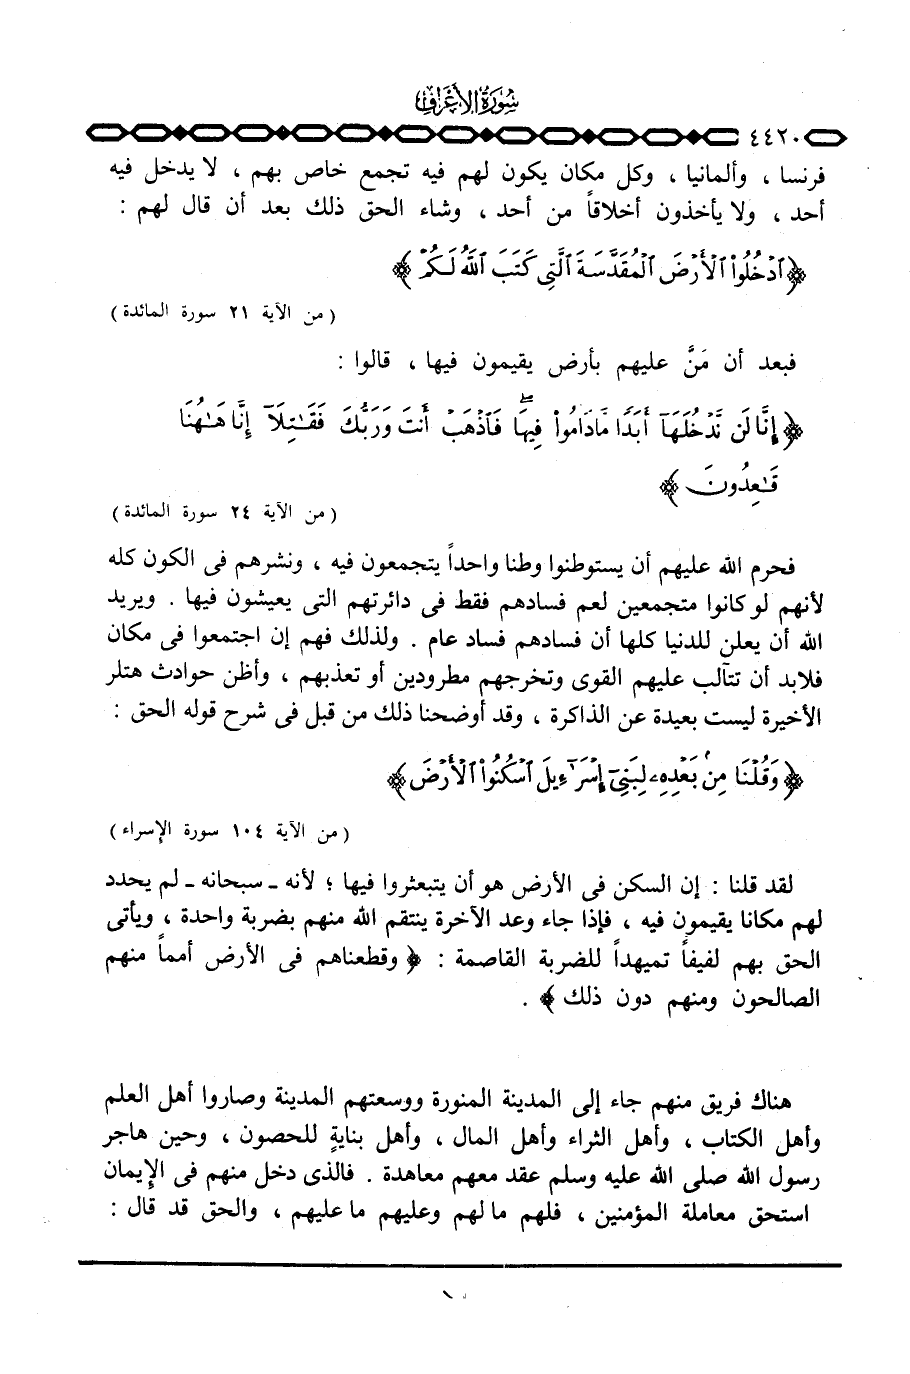 سُورَةُ الأَعْرَافِ
٤٤٢٠
فرنسا ، وألمانيا ، وكل مكان يكون لهم فيه تجمع خاص بهم ، لا يدخل فيه
أحد ، ولا يأخذون أخلاقاً من أحد ، وشاء الحق ذلك بعد أن قال لهم :
﴿ ٱدْخُلُوا۟ ٱلْأَرْضَ ٱلْمُقَدَّسَةَ ٱلَّتِى كَتَبَ ٱللَّهُ لَكُمْ ﴾
( من الآية ٢١ سورة المائدة )
فبعد أن مَنَّ عليهم بأرض يقيمون فيها ، قالوا :
﴿ إِنَّا لَن نَّدْخُلَهَآ أَبَدًا مَّا دَامُوا۟ فِيهَا ۖ فَٱذْهَبْ أَنتَ وَرَبُّكَ فَقَـٰتِلَآ إِنَّا هَـٰهُنَا
قَـٰعِدُونَ ﴾
( من الآية ٢٤ سورة المائدة )
فحرم الله عليهم أن يستوطنوا وطنا واحداً يتجمعون فيه ، ونشرهم فى الكون كله
لأنهم لو كانوا متجمعين لعم فسادهم فقط فى دائرتهم التى يعيشون فيها . ويريد
الله أن يعلن للدنيا كلها أن فسادهم فساد عام . ولذلك فهم إن اجتمعوا فى مكان
فلابد أن تتآلب عليهم القوى وتخرجهم مطرودين أو تعذبهم ، وأظن حوادث هتلر
الأخيرة ليست بعيدة عن الذاكرة ، وقد أوضحنا ذلك من قبل فى شرح قوله الحق :
﴿ وَقُلْنَا مِنۢ بَعْدِهِۦ لِبَنِىٓ إِسْرَٰٓءِيلَ ٱسْكُنُوا۟ ٱلْأَرْضَ ﴾
( من الآية ١٠٤ سورة الإسراء )
لقد قلنا : إن السكن فى الأرض هو أن يتبعثروا فيها ؛ لأنه ـ سبحانه ـ لم يحدد
لهم مكانا يقيمون فيه ، فإذا جاء وعد الآخرة ينتقم الله منهم بضربة واحدة ، ويأتى
الحق بهم لفيفاً تميهداً للضربة القاصمة : ﴿ وقطعناهم فى الأرض أمماً منهم
الصالحون ومنهم دون ذلك ﴾ .
هناك فريق منهم جاء إلى المدينة المنورة ووسعتهم المدينة وصاروا أهل العلم
وأهل الكتاب ، وأهل الثراء وأهل المال ، وأهل بنايةٍ للحصون ، وحين هاجر
رسول الله صلى الله عليه وسلم عقد معهم معاهدة . فالذى دخل منهم فى الإيمان
استحق معاملة المؤمنين ، فلهم ما لهم وعليهم ما عليهم ، والحق قد قال :